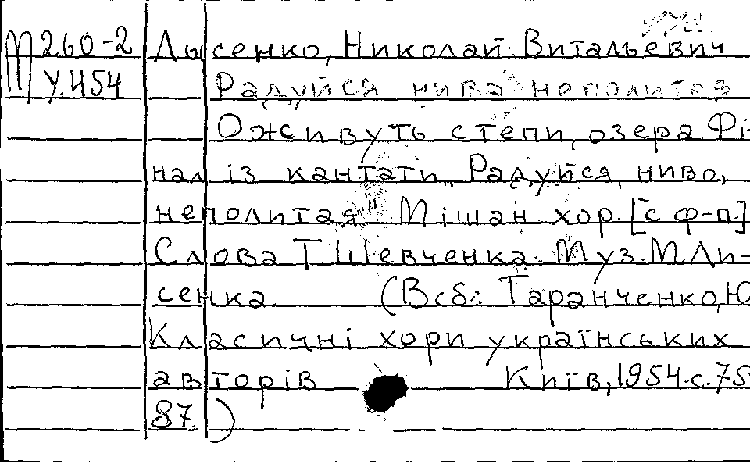 М260-2 Лысенко, Николай Витальевич
У.454 Радуйся нива неполитая
Оживуть степи, озера. Фі-
нал із кантати „Радуйся, ниво,
неполитая". Мішан. хор. [с ф-п.]
Слова Т. Шевченка. Муз. М. Ли-
сенка. (В сб.: Таранченко, Ю
Класичні хори українських
авторів Київ, 1954. с. 75
87)